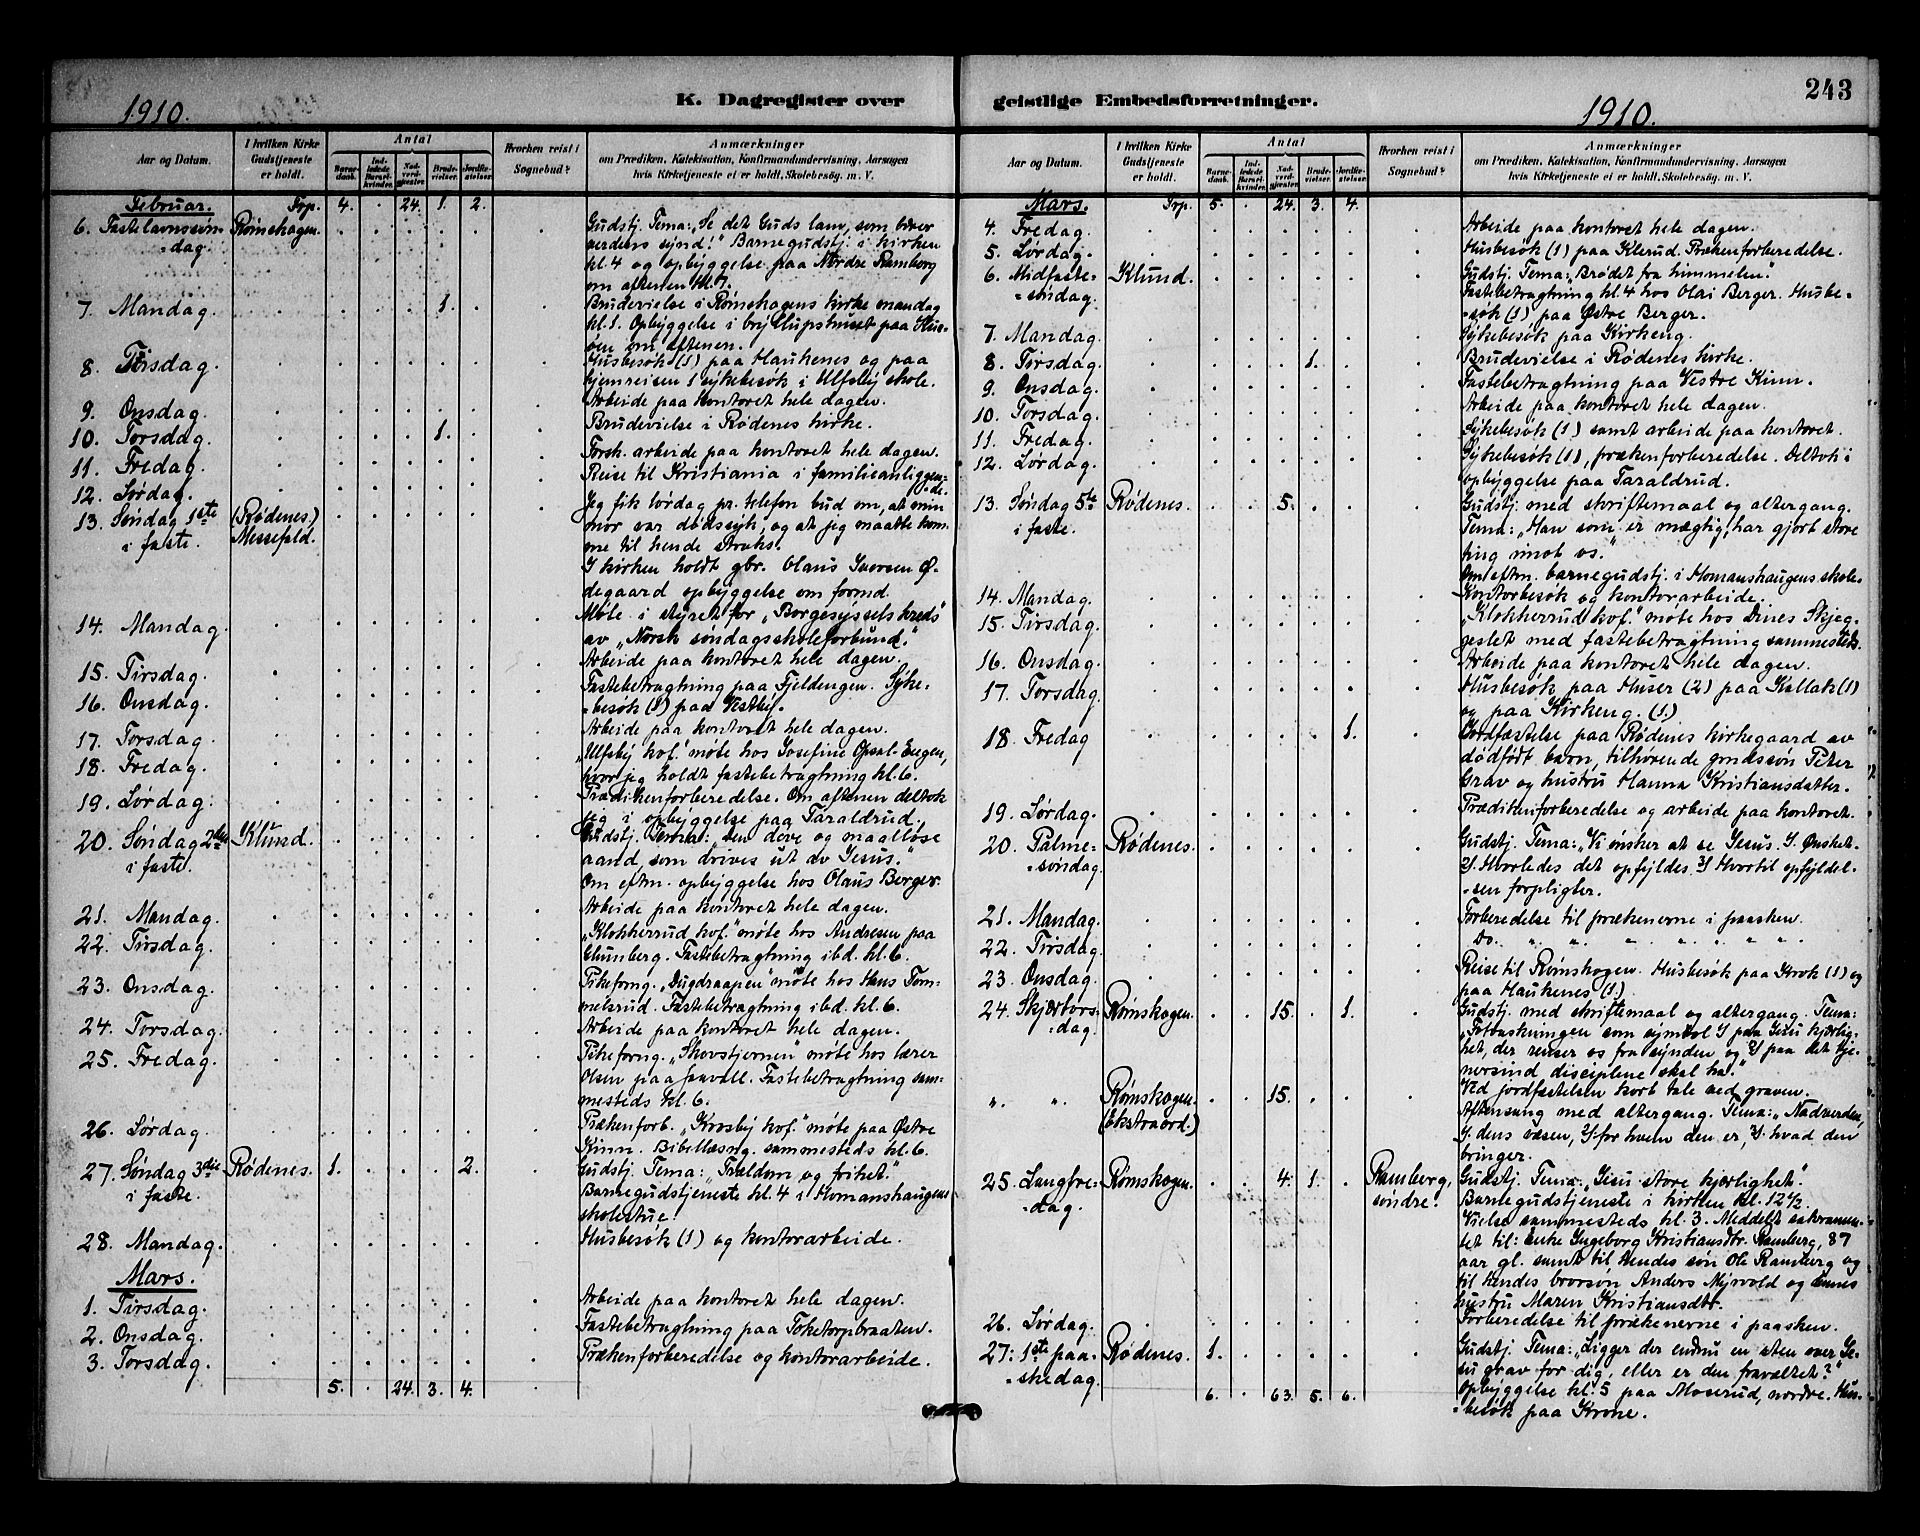 1910.
K. Dagregister over
Aar og Datum.
I hvilken Kirke Gudstjeneste er holdt.
Antal
Barnedaab.
Indledede Barselkvinder.
Nadverdgjester.
Brudevielser.
Jordfæstelser.
Hvorhen reist i Sognebud?
Anmærkninger
om Prædiken, Katekisation, Konfirmandundervisning, Aarsagen
hvis Kirketjeneste ei er holdt, Skolebesøg, m. V.
Februar. Trp. 4. . 24. 1. 2.
6. Fastelavnssøn=
=dag. Rømskogen.
Gudstj. Tema: „Se det Guds lam, som bærer
verdens synd!" Barnegudstj. i kirken
kl. 4 og opbyggelse paa Nordre Ramberg
om aftenen kl. 7.
7. Mandag. 1.
Brudevielse i Rømskogens kirke mandag
kl. 1. Opbyggelse i bryllupshuset paa
om aftenen.
8. Tirsdag.
Husbesøk (1) paa Haukenes og paa
hjemreisen 1 sykebesøk i Ulfsby skole.
9. Onsdag.
Arbeide paa kontoret hele dagen.
10. Torsdag. 1.
Brudevielse i Rødenes kirke.
11. Fredag.
Forsk. arbeide paa kontoret hele dagen.
12. Lørdag.
Reise til Kristiania i familieanliggen=
=de.
13. Søndag 1ste
i faste. (Rødenes)
Messefald.
Jeg fik lørdag pr. telefon bud om, at min
mor var dødssyk, og at jeg maatte kom=
me til hende straks.
I kirken holdt gbr. Olaus Iversen Ø=
degaard opbyggelse om formd.
14. Mandag.
Møte i styret for „Borgesyssels kreds"
av „Norsk søndagsskoleforbund."
15. Tirsdag.
Arbeide paa kontoret hele dagen.
16. Onsdag.
Fastebetragtning paa Fjeldengen. Syke=
=besøk (1) paa Vestby.
17. Torsdag.
Arbeide paa kontoret hele dagen.
18. Fredag.
„Ulfsby kof." møte hos Josefine Opsal-Engen,
hvor jeg holdt fastebetragtning kl. 6.
19. Lørdag.
Prædikenforberedelse. Om aftenen deltok
jeg i opbyggelse paa Taraldrud.
20. Søndag 2den
i faste. Klund.
Gudstj. Tema: „Den døve og maalløse
aand, som drives ut av Jesus."
Om eftm. opbyggelse hos Olaus Berger.
21. Mandag.
Arbeide paa kontoret hele dagen.
22. Tirsdag.
„Klokkerrud kof." møte hos Andresen paa
Elumberg. Fastebetragtning ibd. kl. 6.
23. Onsdag.
Pikeforng. „Dugdraapen" møte hos Hans Tom=
melsrud. Fastebetragtning ibd. kl. 6.
24. Torsdag.
Arbeide paa kontoret hele dagen.
25. Fredag.
Pikeforng. „Skovstjernen" møte hos lærer
Olsen paa Jaavall. Fastebetragtning sam=
mesteds kl. 6.
26. Lørdag.
Prækenforb. „Krosby kof." møte paa Østre
Kinn. Bibellæsng. sammesteds kl. 6.
27. Søndag 3die
i faste. Rødenes. 1. 2.
Gudstj. Tema: „Trældom og frihet."
Barnegudstjeneste kl. 4 i Homanshaugens
skolestue.
28. Mandag.
Husbesøk (1) og kontorarbeide.
Mars.
1. Tirsdag.
Arbeide paa kontoret hele dagen.
2. Onsdag.
Fastebetragtning paa Toketorpbraaten.
3. Torsdag.
Prækenforberedelse og kontorarbeide.
5. . 24. 3. 4.
243
geistlige Embedsforretninger.
1910.
Aar og Datum.
I hvilken Kirke Gudstjeneste er holdt.
Antal
Barnedaab.
Indledede Barselkvinder.
Nadverdgjester.
Brudevielser.
Jordfæstelser.
Hvorhen reist i Sognebud?
Anmærkninger
om Prædiken, Katekisation, Konfirmandundervisning, Aarsagen
hvis Kirketjeneste ei er holdt, Skolebesøg, m. V.
Mars. Trp. 5. . 24. 3. 4.
4. Fredag.
Arbeide paa kontoret hele dagen.
5. Lørdag.
Husbesøk (1) paa Klerud. Prækenforberedelse.
6. Midfaste=
=søndag. Klund.
Gudstj. Tema: „Brødet fra himmelen."
Fastebetragtng. kl. 4 hos Olai Berger. Husbe=
=søk (1) paa Østre Berger.
7. Mandag.
Sykebesøk paa Kirkeng.
8. Tirsdag. 1.
Brudevielse i Rødenes kirke.
9. Onsdag.
Fastebetragtning paa Vestre Kinn.
10. Torsdag.
Arbeide paa kontoret hele dagen.
11. Fredag.
Sykebesøk (1) samt arbeide paa kontoret.
12. Lørdag.
Sykebesøk (1), prækenforberedelse. Deltok i
opbyggelse paa Taraldrud.
13. Søndag 5te
i faste. Rødenes. 5.
Gudstj. med skriftemaal og altergang.
Tema: „Han som er mægtig, har gjort store
ting imot os."
Om eftm. barnegudstj. i Homanshaugens skole.
14. Mandag.
Kontorbesøk og kontorarbeide.
15. Tirsdag.
„Klokkerrud kof." møte hos Dines Skjeg=
gestet med fastebetragtning sammesteds.
16. Onsdag.
Arbeide paa kontoret hele dagen.
17. Torsdag.
Husbesøk paa Huser (2) paa Kallak (1)
og paa Kirkeng. (1.)
18. Fredag 1.
Jordfæstelse paa Rødenes kirkegaard av
dødfødt barn, tilhørende grdssøn Peter
Grav og hustru Hanna Kristiansdatter.
19. Lørdag.
Prædikenforberedelse og arbeide paa kontoret.
20. Palme=
=søndag. Rødenes.
Gudstj. Tema: „Vi ønsker at se Jesus. 1) Ønsket.
2) Hvorledes det opfyldes. 3) Hvortil opfyldel=
=sen forpligter.
21. Mandag.
Forberedelse til prækenerne i paasken.
22. Tirsdag.
Do. „ „ „ „ „ „ „
23. Onsdag.
Reise til Rømskogen. Husbesøk paa Krok (1) og
paa Haukenes (1.)
24. Skjærtors=
=dag. Rømskogen. 15. 1.
Gudstj. med skriftemaal og altergang. Tema:
„Fotvaskningen som symbol 1) paa Jesu kjærlig=
het, der renser os fra synden og 2) paa det tje=
nersind disciplene skal ha."
Ved jordfæstelsen kort tale ved graven.
„ „ Rømskogen.
(Ekstraord.) 15.
Aftensang med altergang. Tema: „Nadverden,
1) dens væsen, 2) for hvem den er, 3) hvad den
bringer.
25. Langfre=
=dag. Rømskogen. 4. 1. Ramberg,
søndre.
Gudstj. Tema: „Jesu store kjærlighet."
Barnegudstjeneste i kirken kl. 12½.
Vielse sammesteds kl. 3. Meddelt sakramen=
tet til: enke Ingeborg Kristiansdtr. Ramberg, 87
aar gl. samt til hendes søn Ole Ramberg og
til hendes brorsøn Anders Myrvold og hans
hustru Maren Kristiansdtr.
26. Lørdag.
Forberedelse til prækenerne i paasken.
27. 1ste paa=
=skedag. Rødenes. 1.
Gudstj. Tema: „Ligger der endnu en sten over Je=
su grav for dig, eller er den fravæltet?"
Opbyggelse kl. 5 paa Moserud, nordre. Hus=
=besøk paa Krone.
6. . 63. 5. 6.